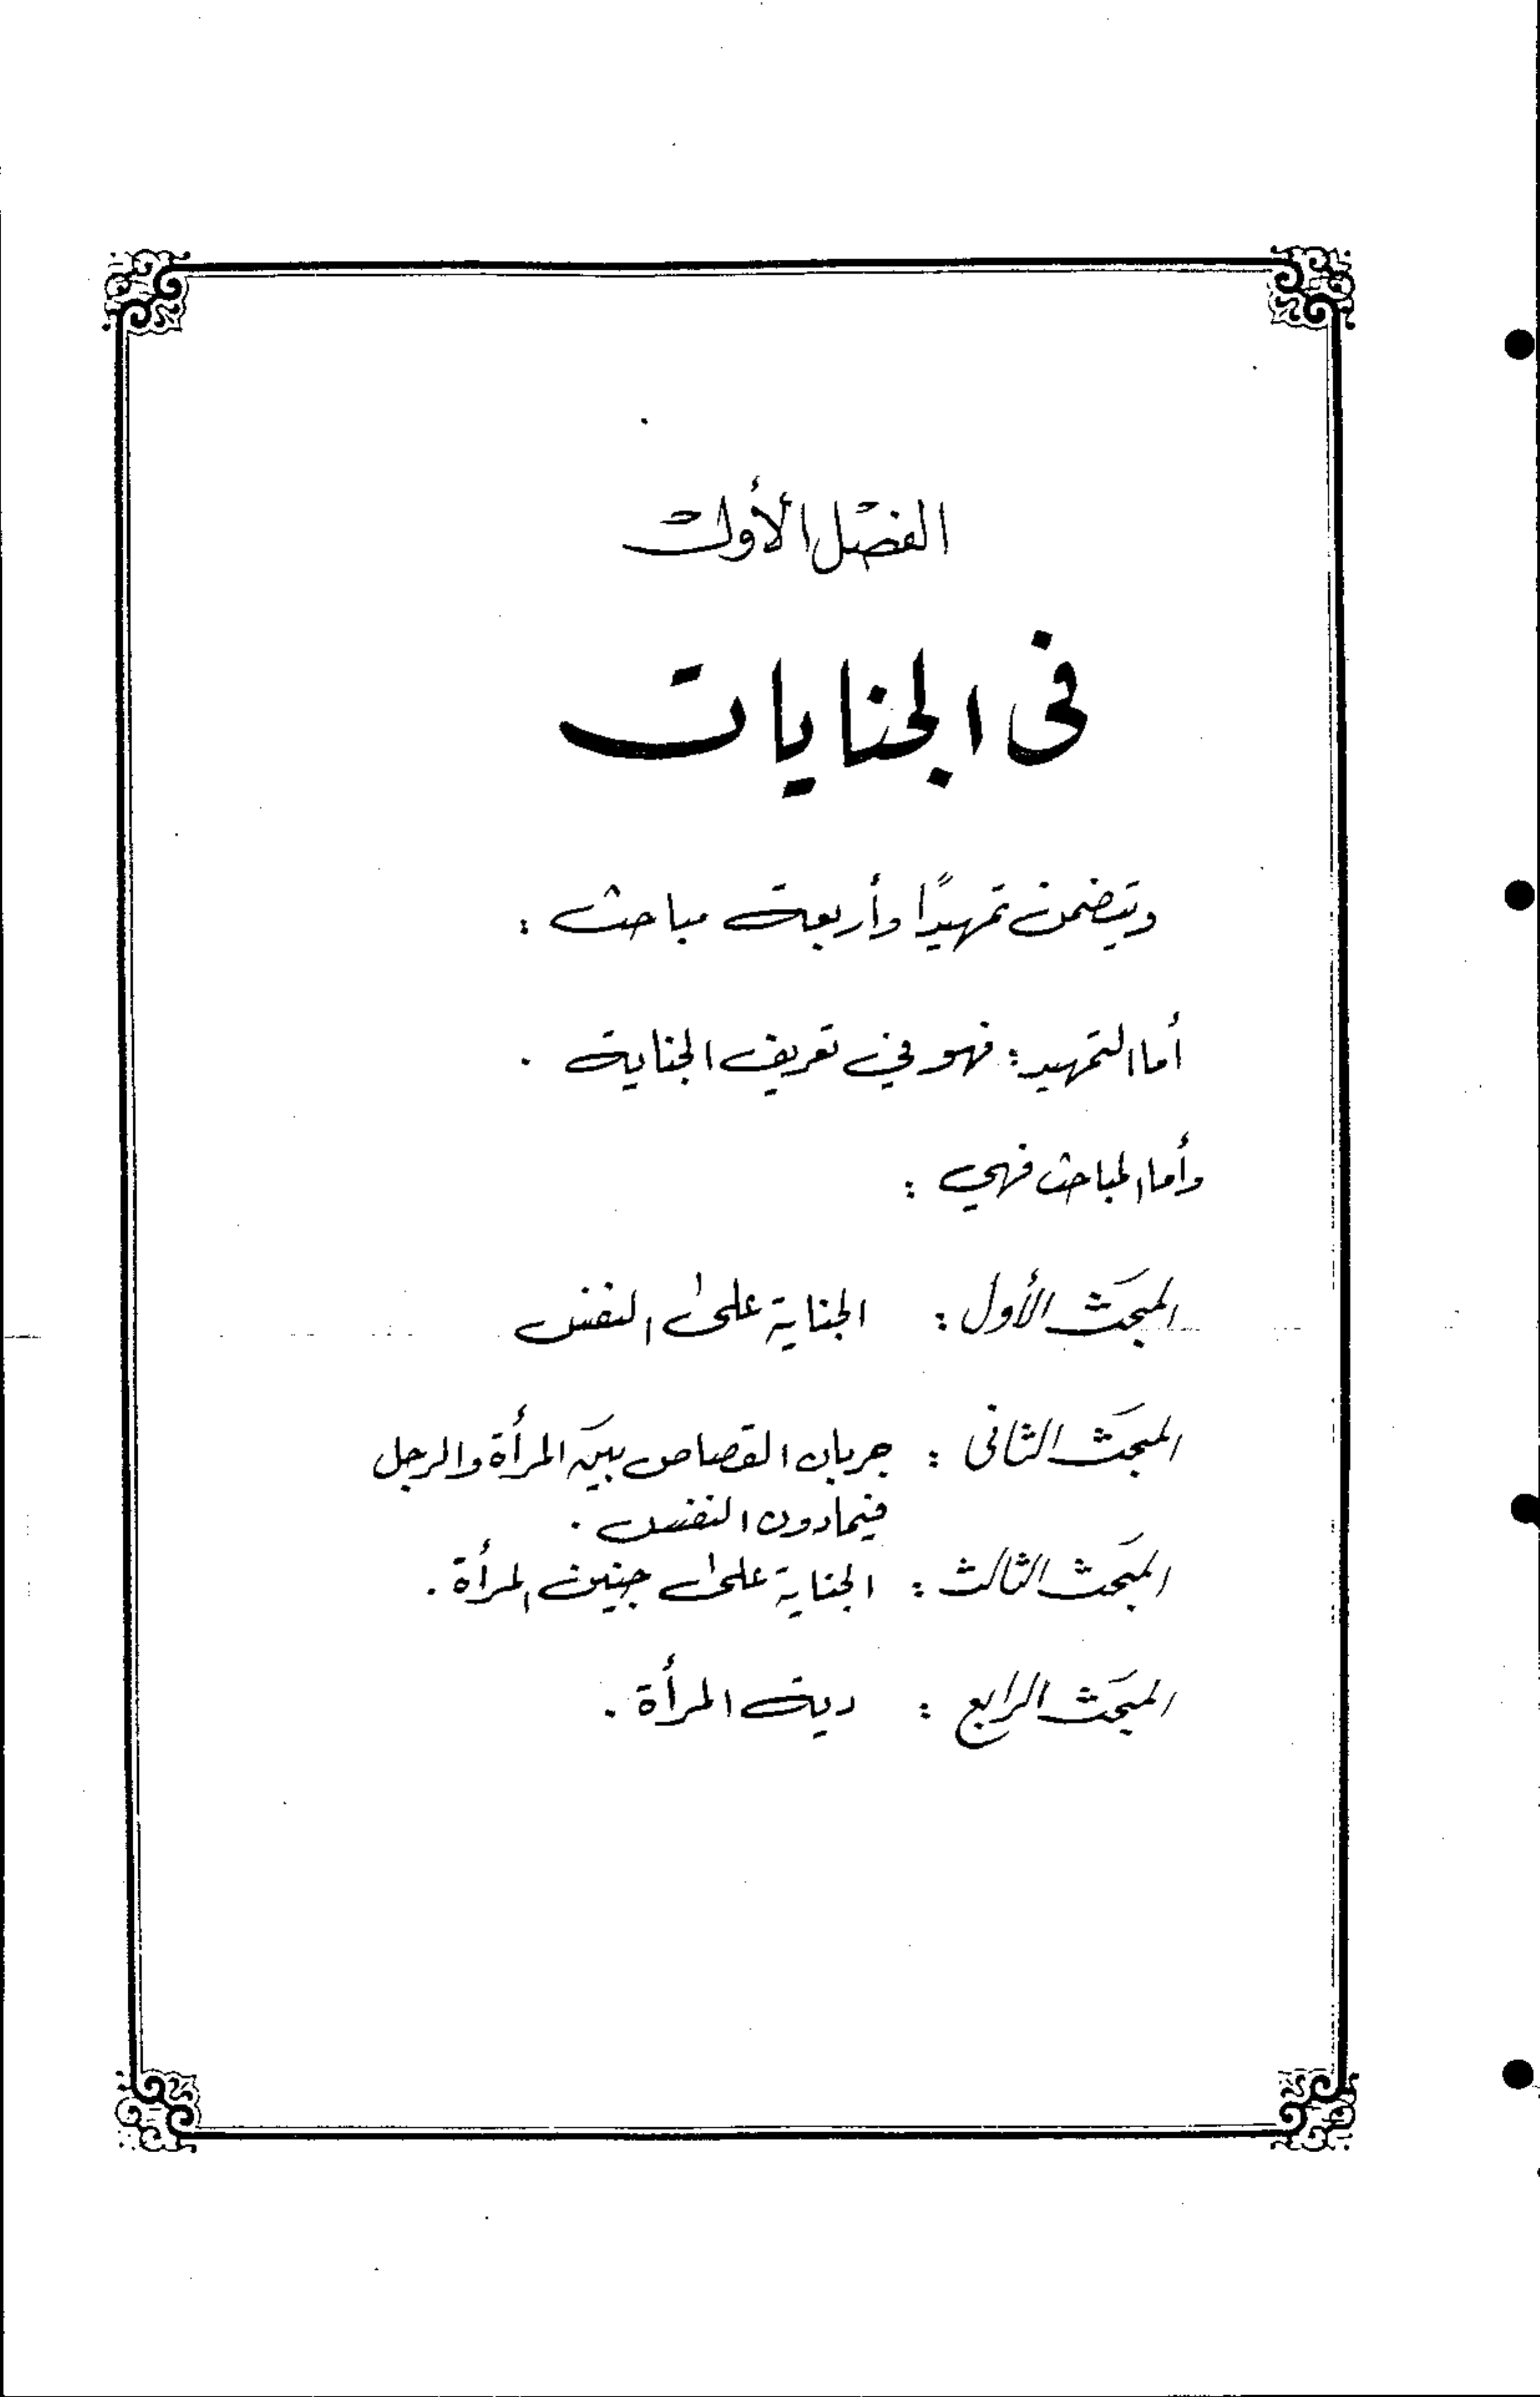 الفصل الأول
في الجنايات
ويتضمن تمهيدًا وأربعة مباحث :
أما التمهيد : فهو في تعريف الجناية .
وأما المباحث فهي :
المبحث الأول : الجناية على النفس
المبحث الثاني : جريان القصاص بين المرأة والرجل
فيما دون النفس .
المبحث الثالث : الجناية على جنين المرأة .
المبحث الرابع : دية المرأة .